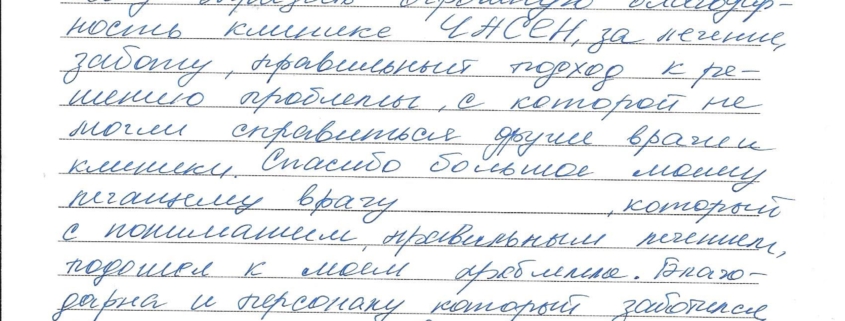 выразить огромную благодар-
ность клинике ЧНСЕН, за лечение,
заботу, правильный подход к ре-
шению проблемы, с которой не
могли справиться другие врачи и
клиники. Спасибо большое моему
лечащему врачу , который
с пониманием, правильным лечением,
подошел к моей проблеме. Благо-
дарна и персоналу который заботился